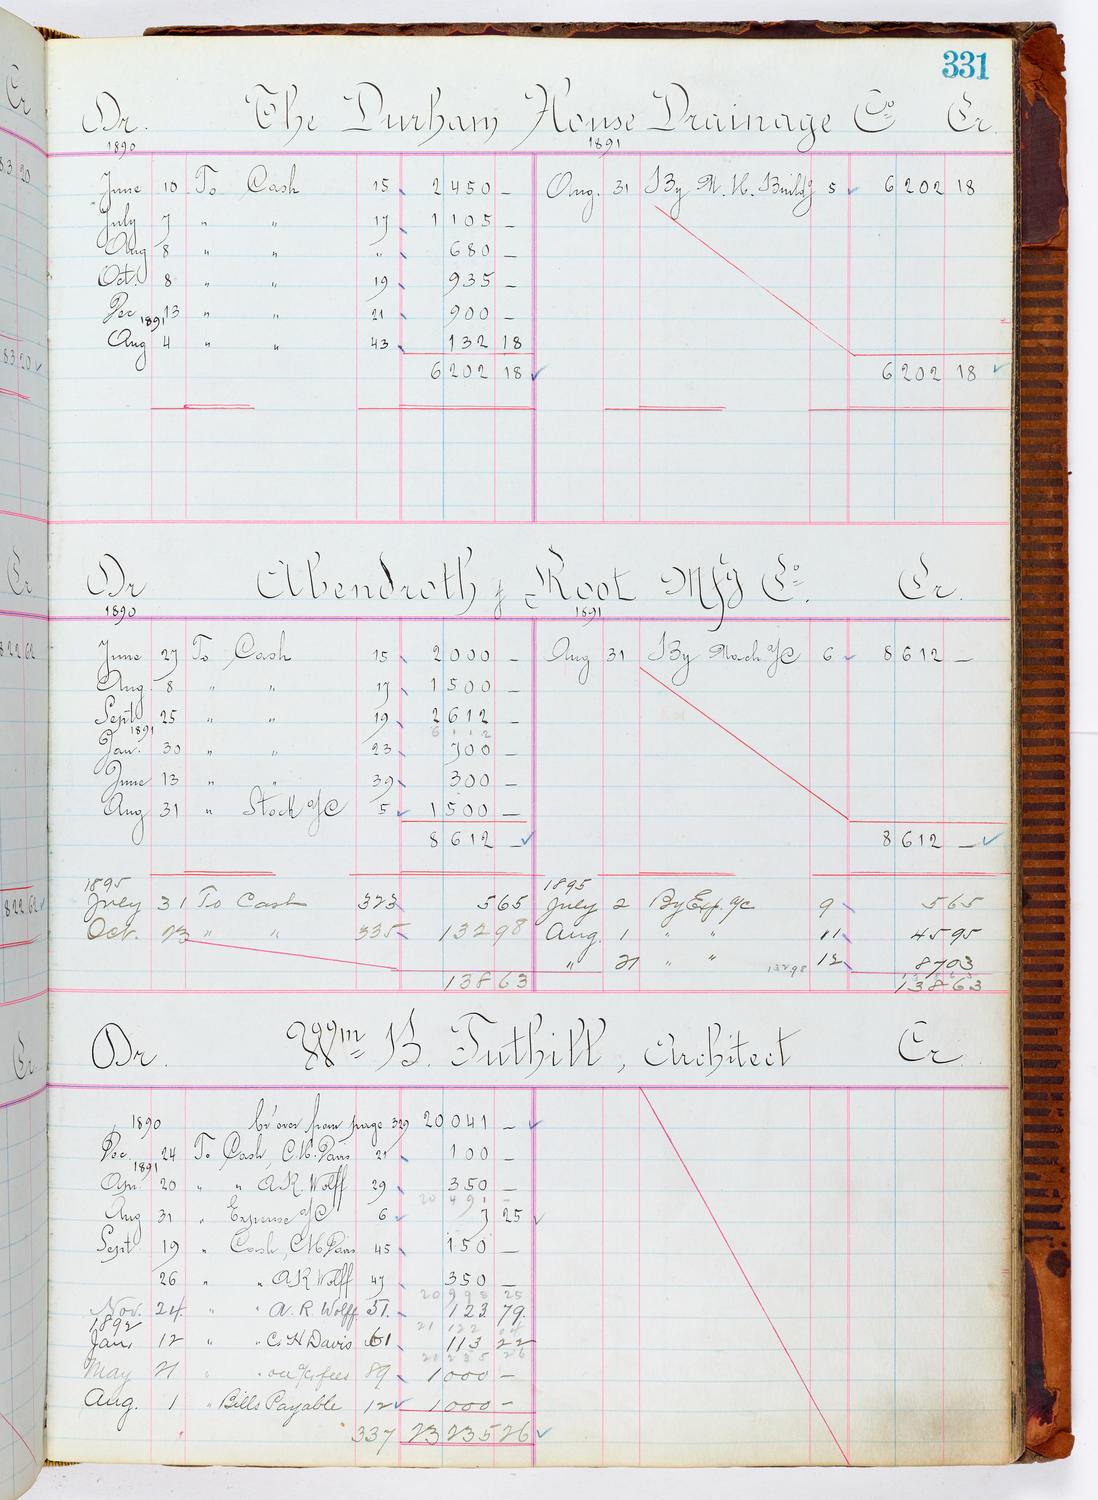 331
Dr. The Durham House Drainage Co Cr.
1890 1891
June 10 To Cash 15 2450 — Aug. 31 By M. H. Buildg 5 6202 18
July 7 " " 17 1105 —
Aug 8 " " " 680 —
Oct. 8 " " 19 935 —
Dec 13 " " 21 900 —
1891
Aug 4 " " 43 132 18
6202 18 6202 18
Dr Abendroth & Root Mfg Co. Cr.
1890 1891
June 27 To Cash 15 2000 — Aug 31 By Mach. a/c 6 8612 —
Aug 8 " " 17 1500 —
Sept 25 " " 19 2612 —
1891 6112
Jan. 30 " " 23 700 —
June 13 " " 39 300 —
Aug 31 " Stock a/c 5 1500 —
8612 — 8612 —
1895 1895
July 31 To Cash 323 565 July 2 By Exp. a/c 9 565
Oct. 23 " " 335 13298 Aug. 1 " " 11 4595
" 21 " " 13298 12 8703
13863 13863
Dr. Wm B. Tuthill, Architect Cr.
1890 br'over from page 329 20041 —
Dec. 24 To Cash, C. H. Davis 21 100 —
1891
Apr. 20 " " A. R. Wolff 29 350 —
20491 —
Aug 31 " Expense a/c 6 7 25
Sept 19 " Cash, C H Davis 45 150 —
26 " " A R Wolff 47 350 —
20998 25
Nov. 24 " " A. R. Wolff 51. 123 79
1892 21122 04
Jan. 12 " " C. H Davis 61 113 22
21235 26
May 21 " " on a/c fees 89 1000 —
Aug. 1 " Bills Payable 12 1000 —
337 23235 26